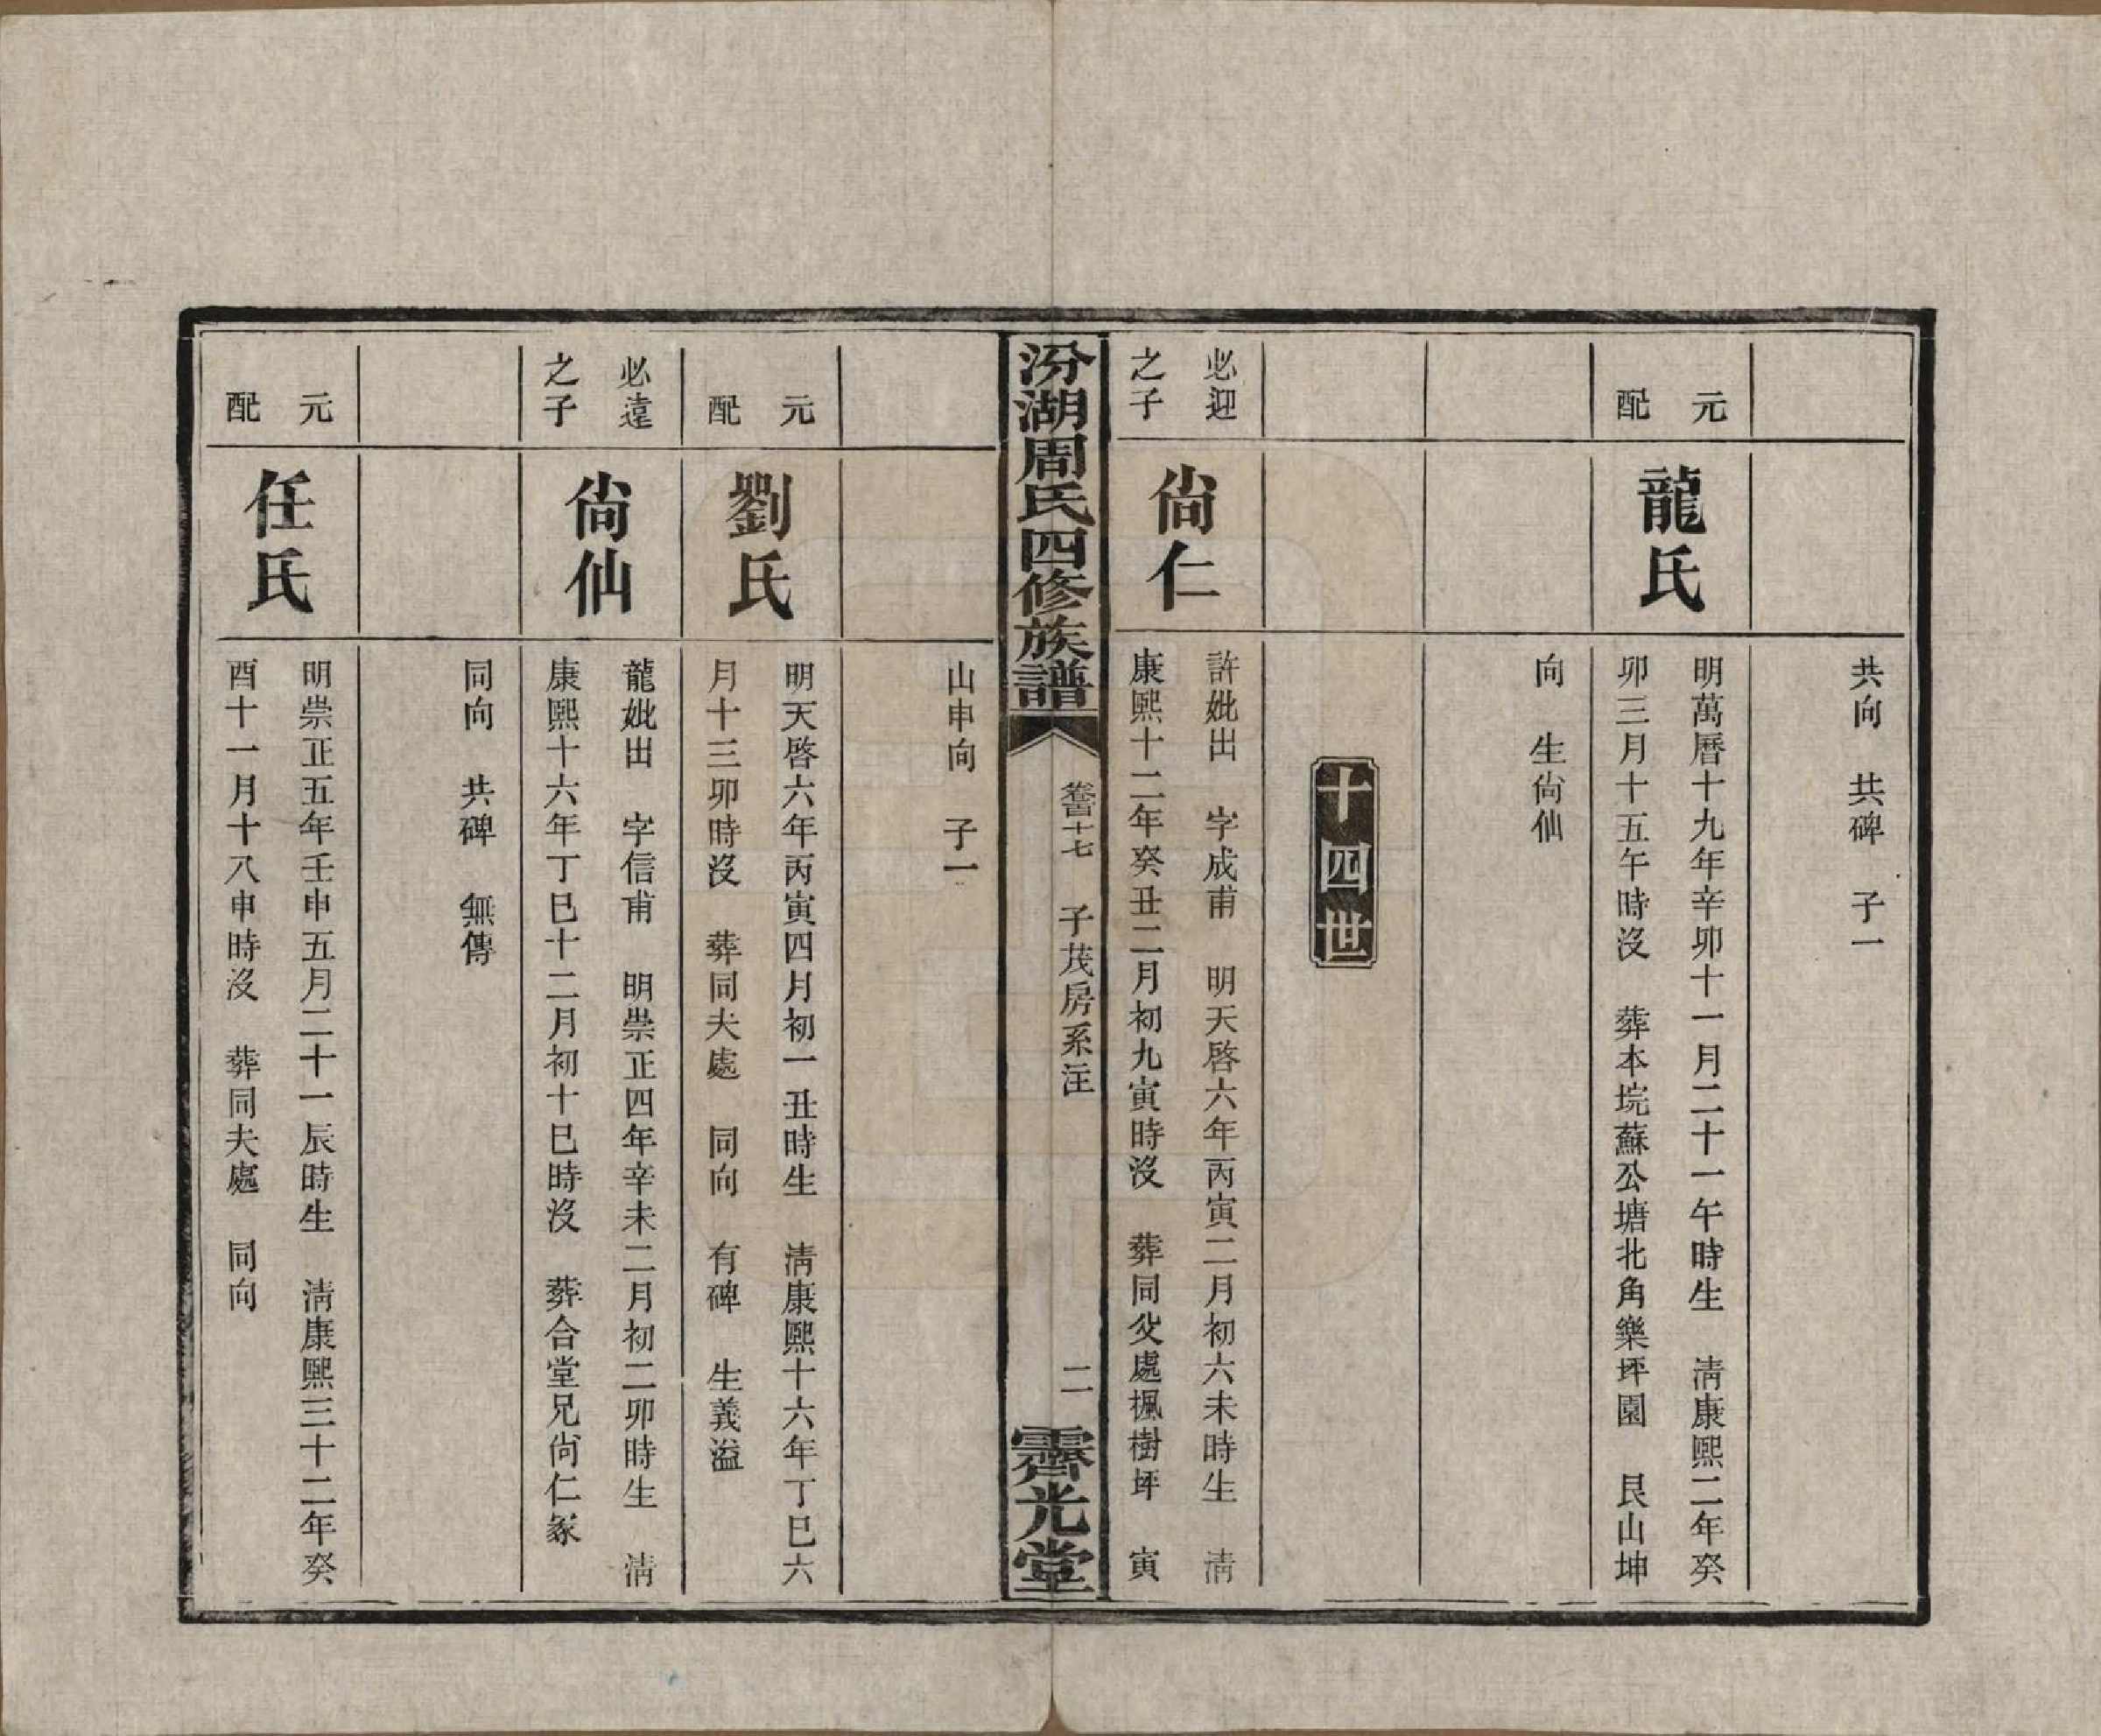 共向　共碑　子一
元配
龍氏
明萬曆十九年辛卯十一月二十一午時生　淸康熙二年癸
卯三月十五午時沒　葬本垸蘇公塘北角樂坪園　艮山坤
向　生尙仙
十四世
必迎之子
尙仁
許妣出　字成甫　明天啓六年丙寅二月初六未時生　淸
康熙十二年癸丑二月初九寅時沒　葬同父處楓樹坪　寅
汾湖周氏四修族譜
卷百十七　子茂房系注
二
霽光堂
山申向　子一
元配
劉氏
明天啓六年丙寅四月初一丑時生　淸康熙十六年丁巳六
月十三卯時沒　葬同夫處　同向　有碑　生義溢
必遠之子
尙仙
龍妣出　字信甫　明崇正四年辛未二月初二卯時生　淸
康熙十六年丁巳十二月初十巳時沒　葬合堂兄尙仁冢
同向　共碑　無傳
元配
任氏
明崇正五年壬申五月二十一辰時生　淸康熙三十二年癸
酉十一月十八申時沒　葬同夫處　同向